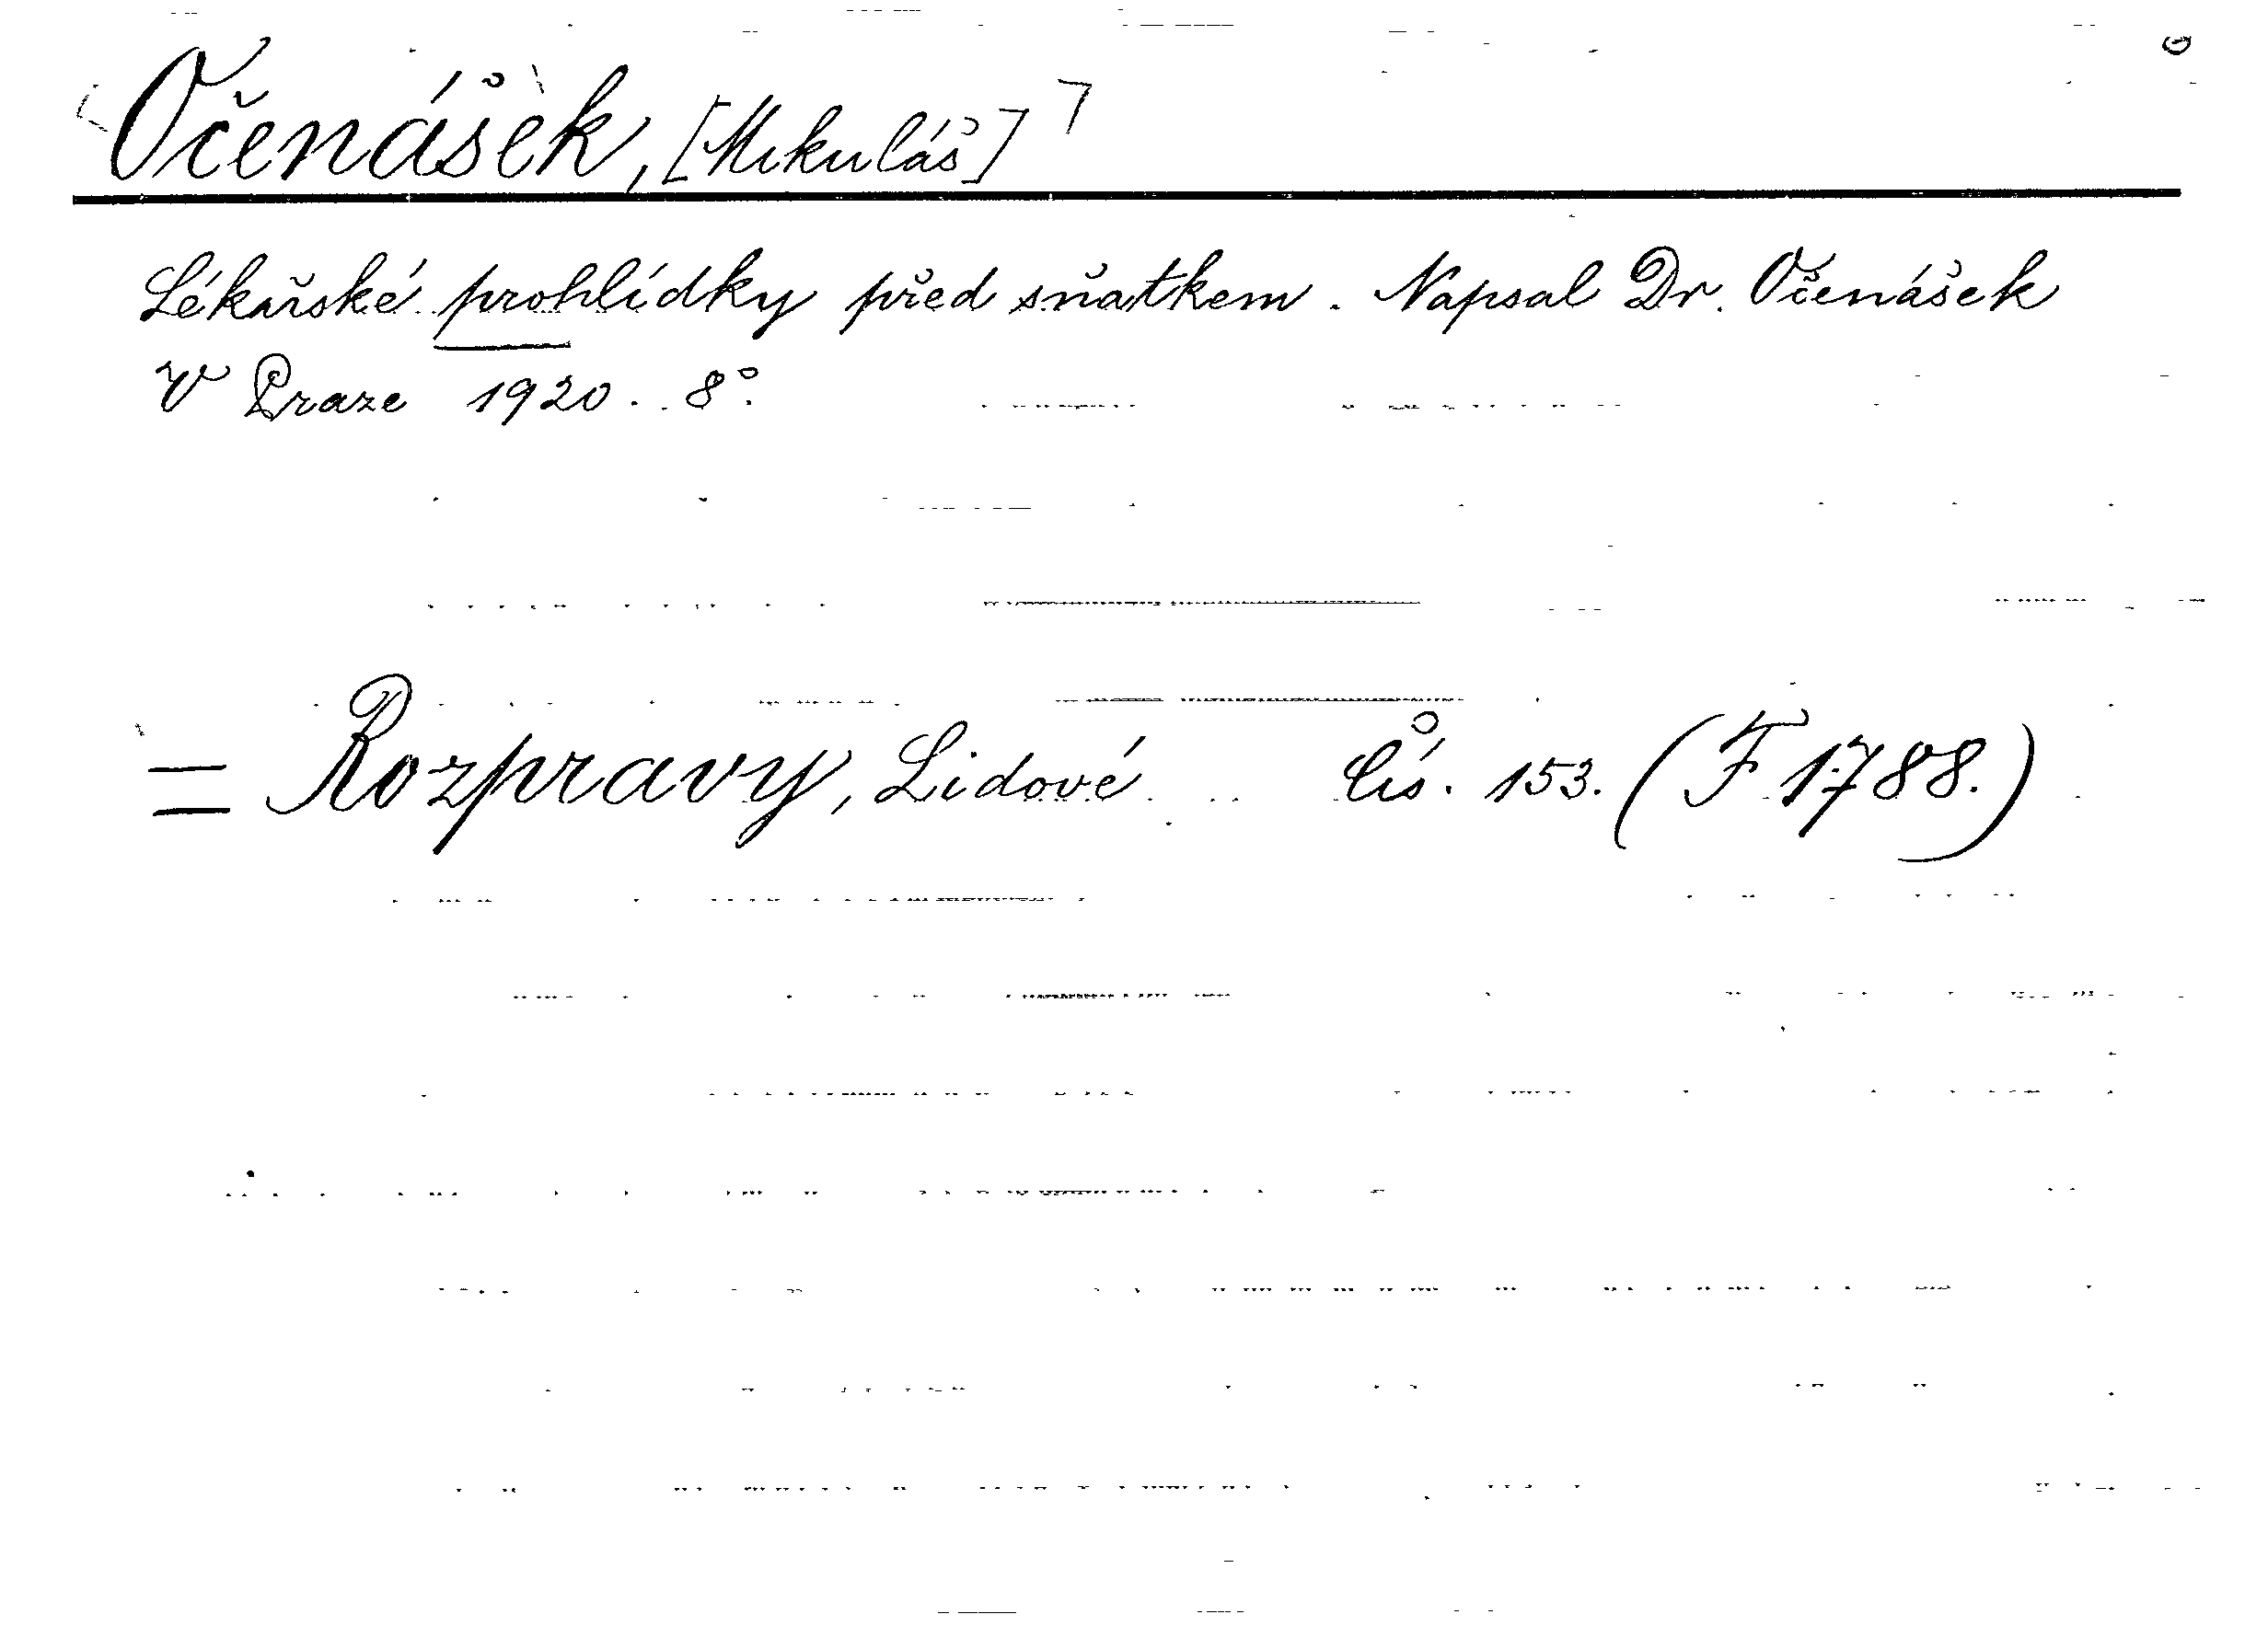 Očenášek, [Mikuláš]
Lékařské prohlídky před sňatkem. Napsal Dr. Očenášek
V Praze 1920. 8°.
= Rozpravy, Lidové Čís. 153. (F 1788.)